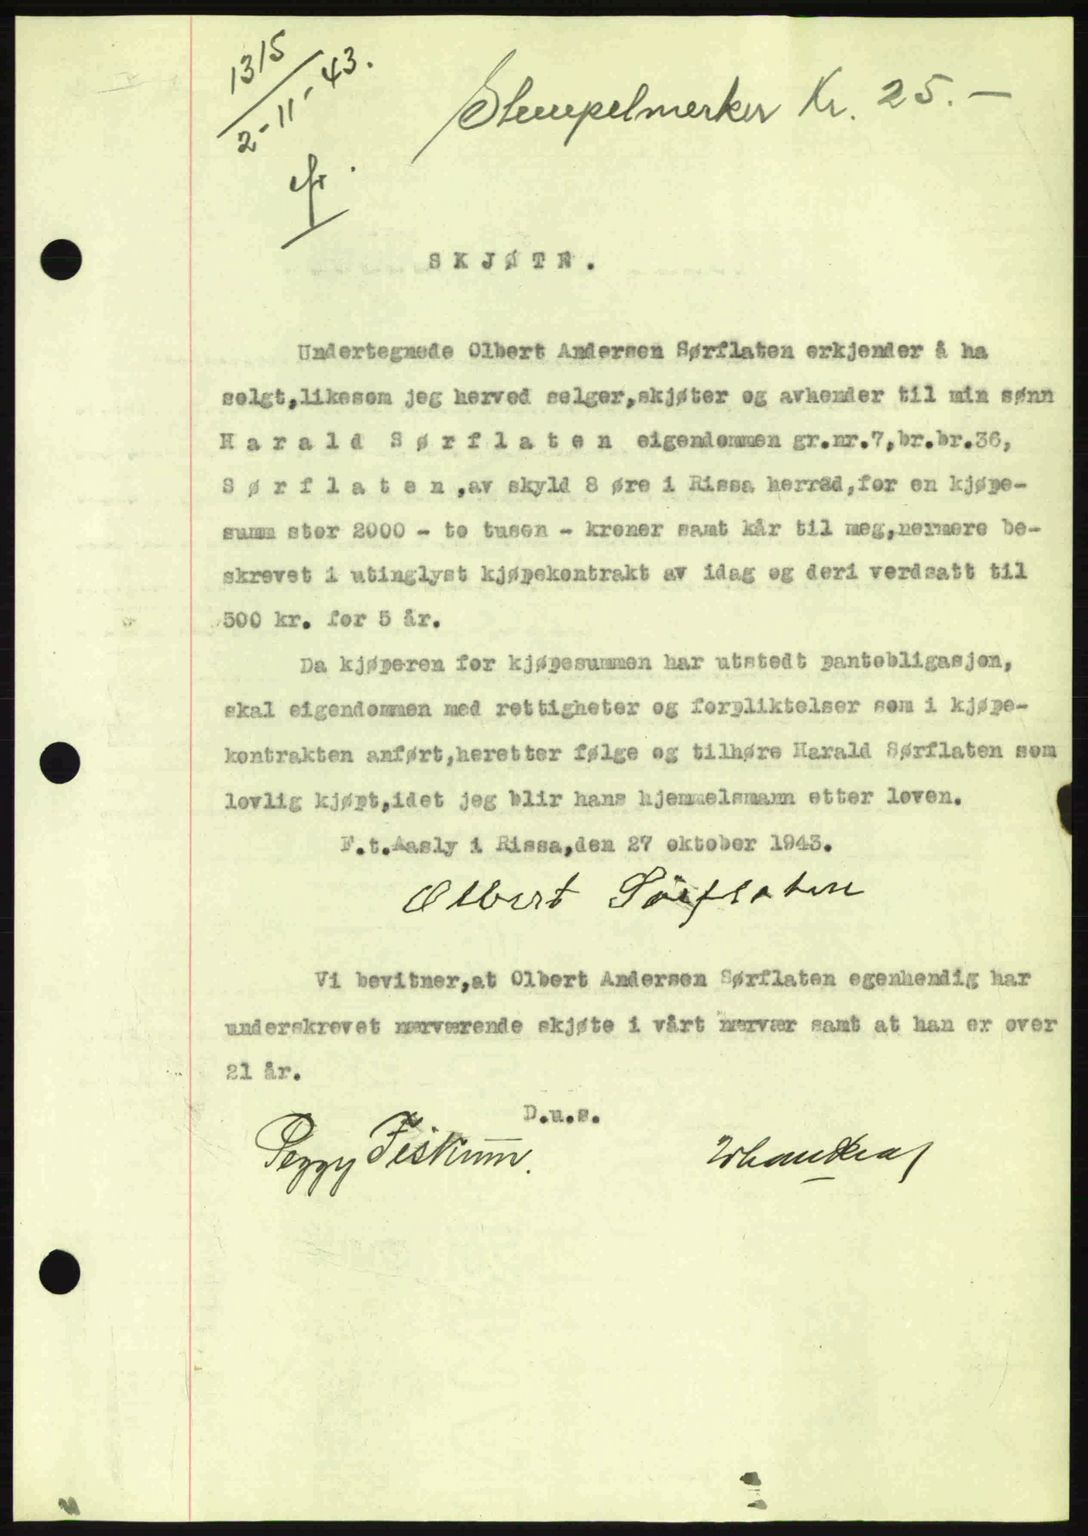 1315
2-11-43.
Stempelmerker Kr. 25.—
SKJØTE.
Undertegnede Olbert Andersen Sørflaten erkjender å ha
selgt,likesom jeg herved selger,skjøter og avhender til min sønn
Harald Sørflaten eigendommen gr.nr.7,br.br.36,
Sørflaten,av skyld 8 øre i Rissa herrad,for en kjøpe-
summ stor 2000 - to tusen - kroner samt kår til meg,nermere be-
skrevet i utinglyst kjøpekontrakt av idag og deri verdsatt til
500 kr. for 5 år.
Da kjøperen for kjøpesummen har utstedt pantobligasjon,
skal eigendommen med rettigheter og forpliktelser som i kjøpe-
kontrakten anført,heretter følge og tilhøre Harald Sørflaten som
lovlig kjøpt,idet jeg blir hans hjemmelsmann etter loven.
F.t.Aasly i Rissa,den 27 oktober 1943.
Olbert Sörflaten
Vi bevitner,at Olbert Andersen Sørflaten egenhendig har
underskrevet nærværende skjøte i vårt nærvær samt at han er over
21 år.
D.u.s.
Peggy Fiskum.